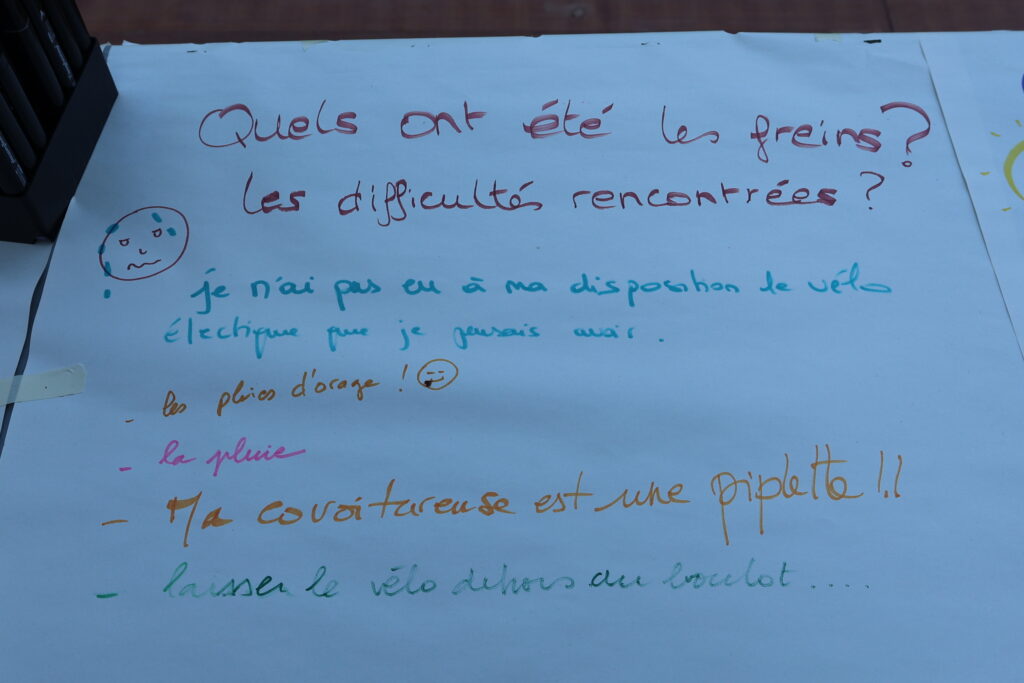 Quels ont été les freins?
les difficultés rencontrées ?
je n'ai pas eu à ma disposition le vélo
électique que je pensais avoir.
- les pluies d'orage !
- la pluie
- Ma covoitureuse est une piplette !!
- laisser le vélo dehors au boulot.....